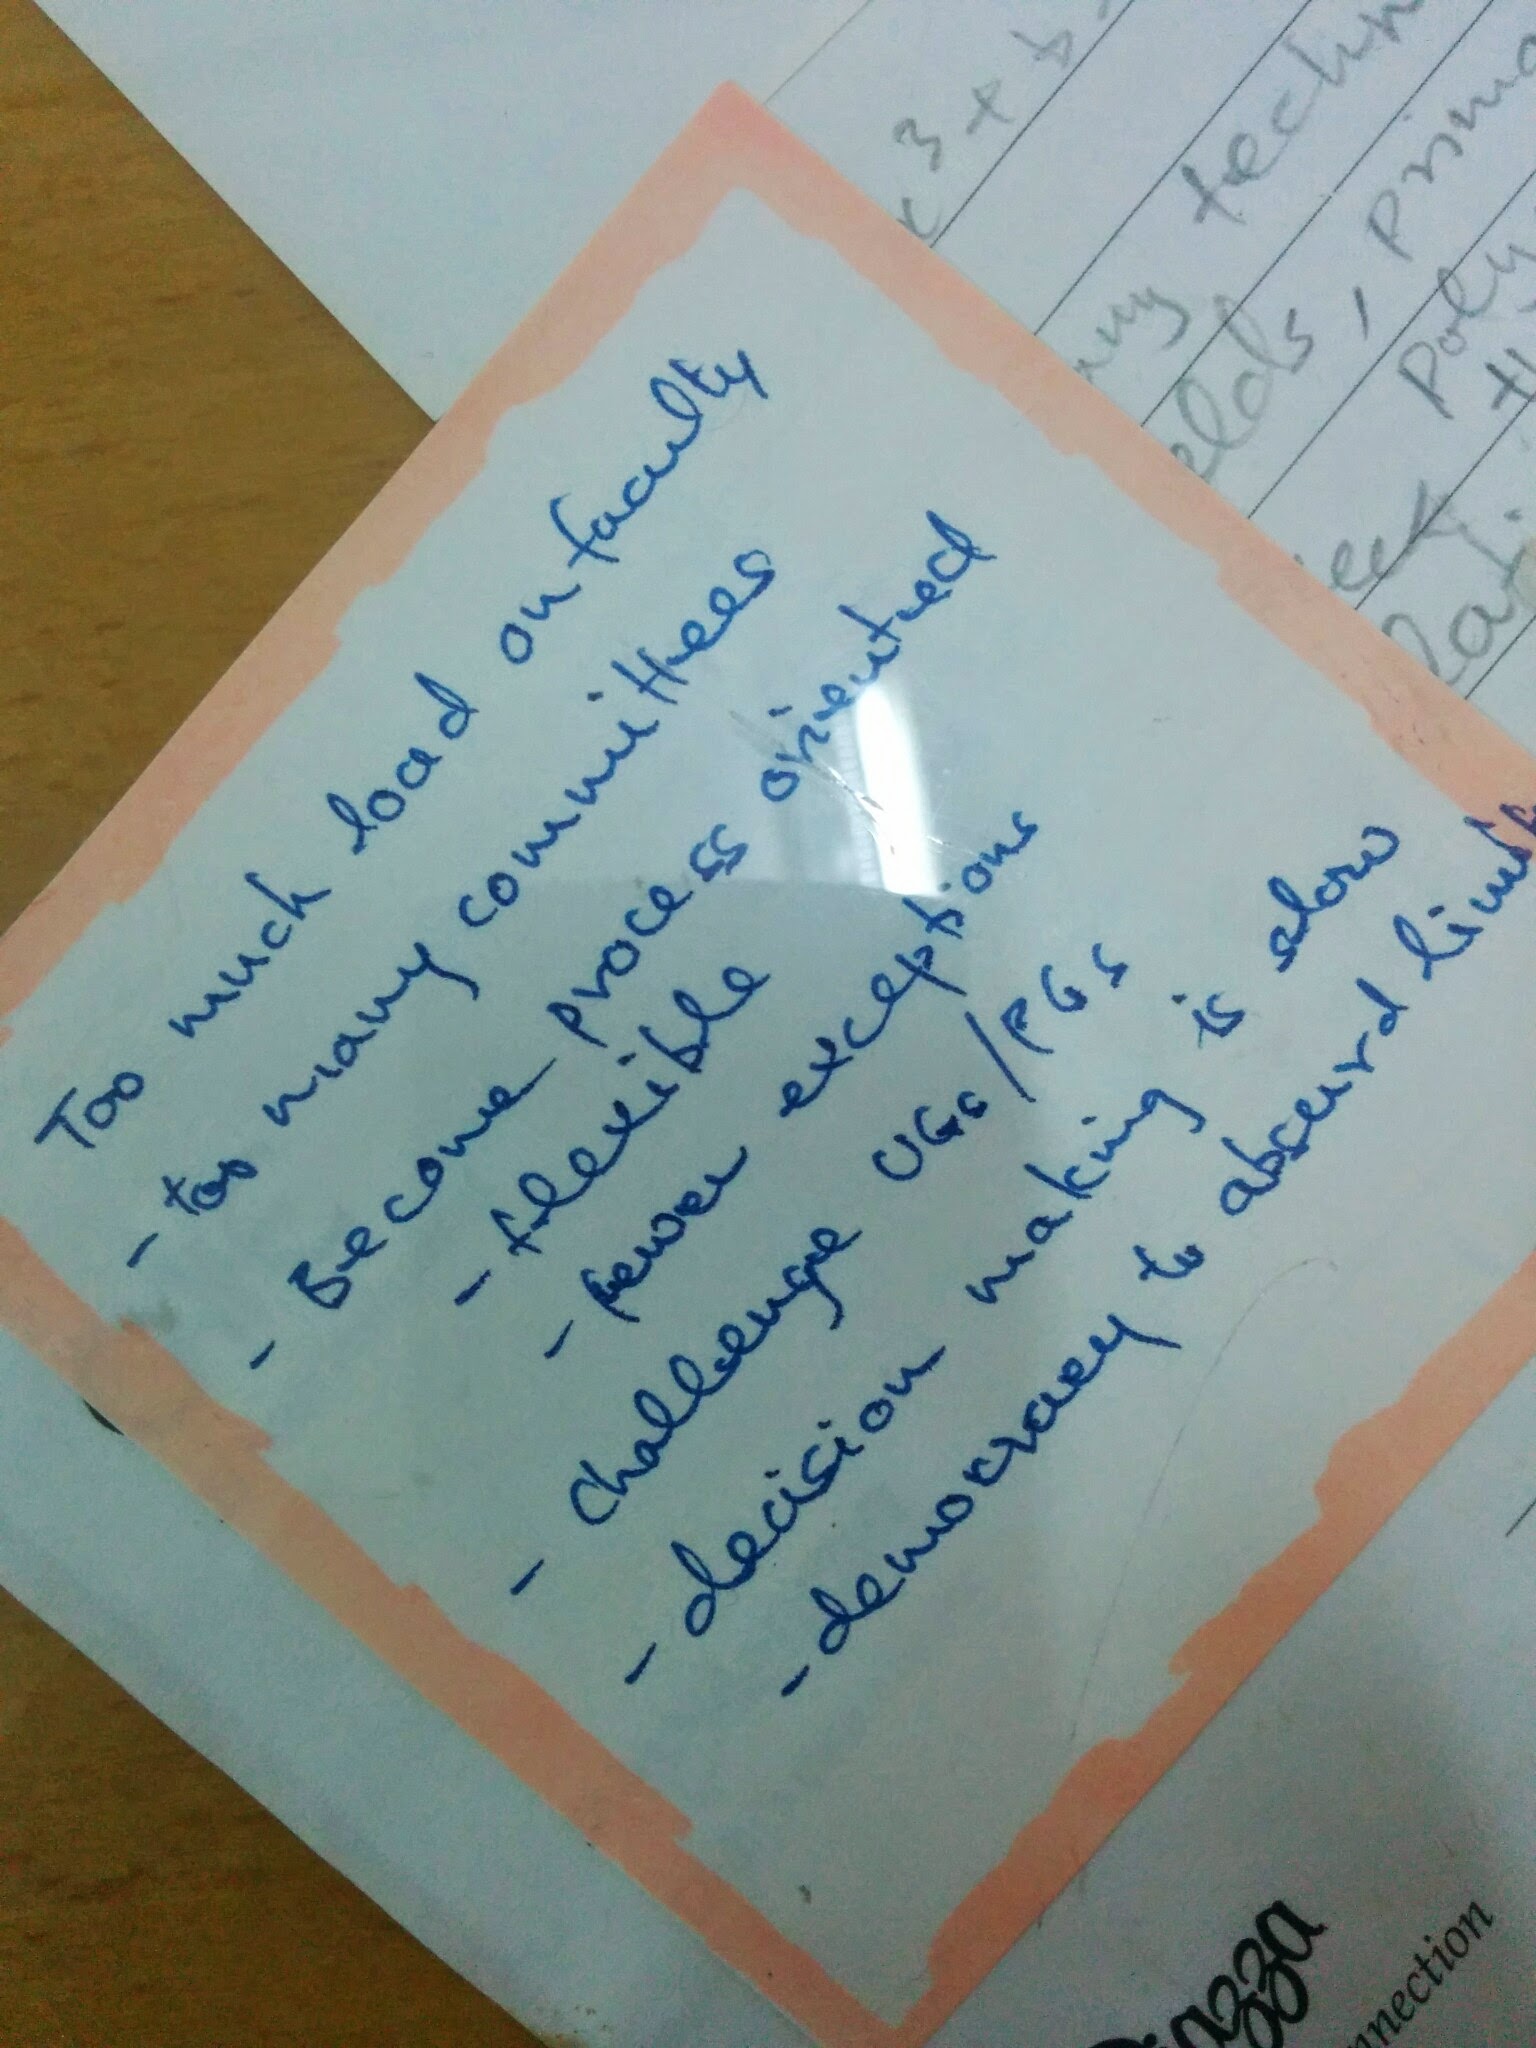 Too much load on faculty
- too many committees
- Become process oriented
- flexible
- fewer exceptions
- Challenge UGs/PGs
- decision making is slow
- democracy to absurd limits
x3 + b
techn
elds, prima
Poly
nnection